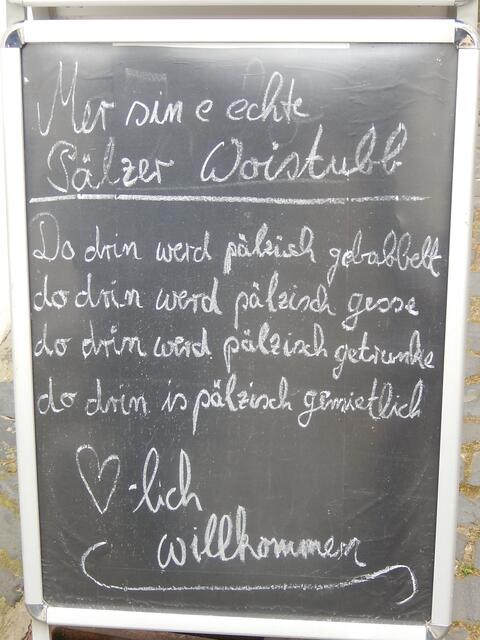 Mer sin e echte
Pälzer Woistubb
Do drin werd pälzisch gebabbelt
do drin werd pälzisch gesse
do drin werd pälzisch getrunke
do drin is pälzisch gemietlich
♡-lich
willkommen